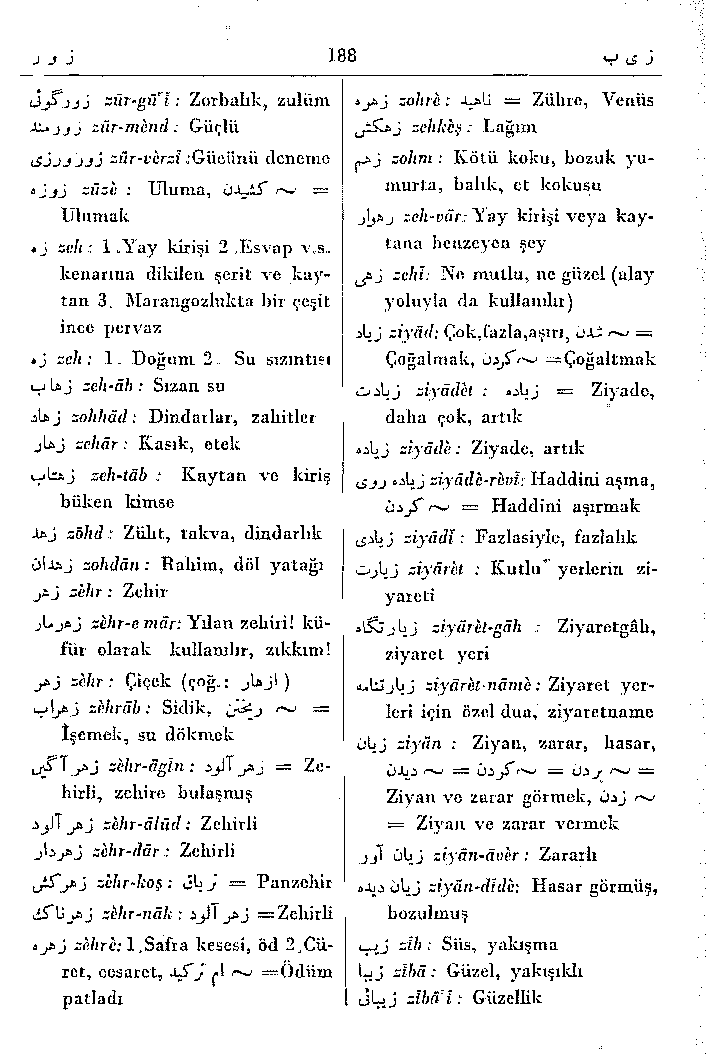 زور 188 زیب
زورگوئی zūr-gū'ī : Zorbalık, zulüm
زورمند zūr-mènd : Güçlü
زورورزی zūr-vèrzī :Gücünü deneme
زوزه zūzè : Uluma, کشیدن ~ =
Ulumak
زه zeh : 1 .Yay kirişi 2 .Esvap v.s.
kenarına dikilen şerit ve kay-
tan 3. Marangozlukta bir çeşit
ince pervaz
زه zeh : 1. Doğum 2. Su sızıntısı
زهاب zeh-āb : Sızan su
زهاد zohhād : Dindarlar, zahitler
زهار zehār : Kasık, etek
زهتاب zeh-tāb : Kaytan ve kiriş
büken kimse
زهد zōhd : Züht, takva, dindarlık
زهدان zohdān : Rahim, döl yatağı
زهر zèhr : Zehir
زهرمار zèhr-e mār: Yılan zehiri! kü-
für olarak kullanılır, zıkkım!
زهر zèhr : Çiçek (çoğ.: ازهار)
زهراب zèhrāb : Sidik, ریختن ~ =
İşemek, su dökmek
زهرآگین zèhr-āgīn : زهرآلود = Ze-
hirli, zehire bulaşmış
زهرآلود zèhr-ālūd : Zehirli
زهردار zèhr-dār : Zehirli
زهرکش zèhr-koş : زریاق = Panzehir
زهرناک zèhr-nāk : زهرآلود =Zehirli
زهره zèhrè: 1.Safra kesesi, öd 2.Cü-
ret, cesaret, ام ترکید ~ =Ödüm
patladı
زهره zohrè : ناهید = Zühre, Venüs
زهکش zehkèş : Lağım
زهم zohm : Kötü koku, bozuk yu-
murta, balık, et kokusu
زهوار zeh-vār: Yay kirişi veya kay-
tana benzeyen şey
زهی zehī: Ne mutlu, ne güzel (alay
yoluyla da kullanılır)
زیاد ziyād: Çok,fazla,aşırı, شدن ~ =
Çoğalmak, کردن ~ =Çoğaltmak
زیادت ziyādèt : زیاده = Ziyade,
daha çok, artık
زیاده ziyādè : Ziyade, artık
زیاده روی ziyādè-rèvī: Haddini aşma,
کردن ~ = Haddini aşırmak
زیادی ziyādī : Fazlasiyle, fazlalık
زیارت ziyārèt : Kutlu yerlerin zi-
yareti
زیارتگاه ziyārèt-gāh : Ziyaretgâh,
ziyaret yeri
زیارتنامه ziyārèt-nāmè : Ziyaret yer-
leri için özel dua, ziyaretname
زیان ziyān : Ziyan, zarar, hasar,
دیدن ~ = کردن ~ = بردن ~ =
Ziyan ve zarar görmek, زدن ~
= Ziyan ve zarar vermek
زیان آور ziyān-āvèr : Zararlı
زیان دیده ziyān-dīdè: Hasar görmüş,
bozulmuş
زیب zīb : Süs, yakışma
زیبا zībā : Güzel, yakışıklı
زیبائی zībā'ī : Güzellik